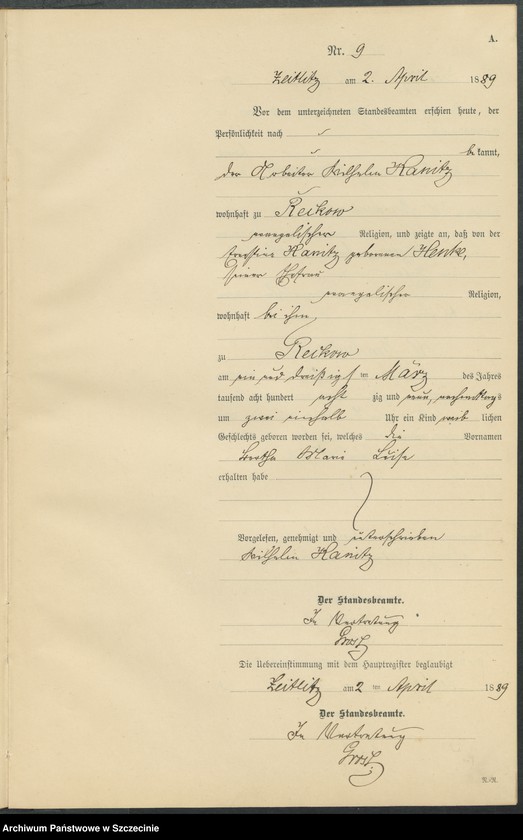 A.
Nr. 9
Zeitlitz am 2. April 1889
Vor dem unterzeichneten Standesbeamten erschien heute, der
Persönlichkeit nach
be kannt,
der Arbeiter Wilhelm Kanitz
wohnhaft zu Reikow
evangelischer Religion, und zeigte an, daß von der
Kanitz geborenen Henke,
seiner Ehefrau
evangelischer Religion,
wohnhaft bei ihm
zu Reikow
am ein und dreißigsten März des Jahres
tausend acht hundert acht zig und neun, nachmittags
um zwei einhalb Uhr ein Kind weib lichen
Geschlechts geboren worden sei, welches die Vornamen
Bertha Marie Luise
erhalten habe
Vorgelesen, genehmigt und unterschrieben
Wilhelm Kanitz
Der Standesbeamte.
In Vertretung
Die Uebereinstimmung mit dem Hauptregister beglaubigt
Zeitlitz am 2 ten April 1889
Der Standesbeamte.
In Vertretung
Archiwum Państwowe w Szczecinie